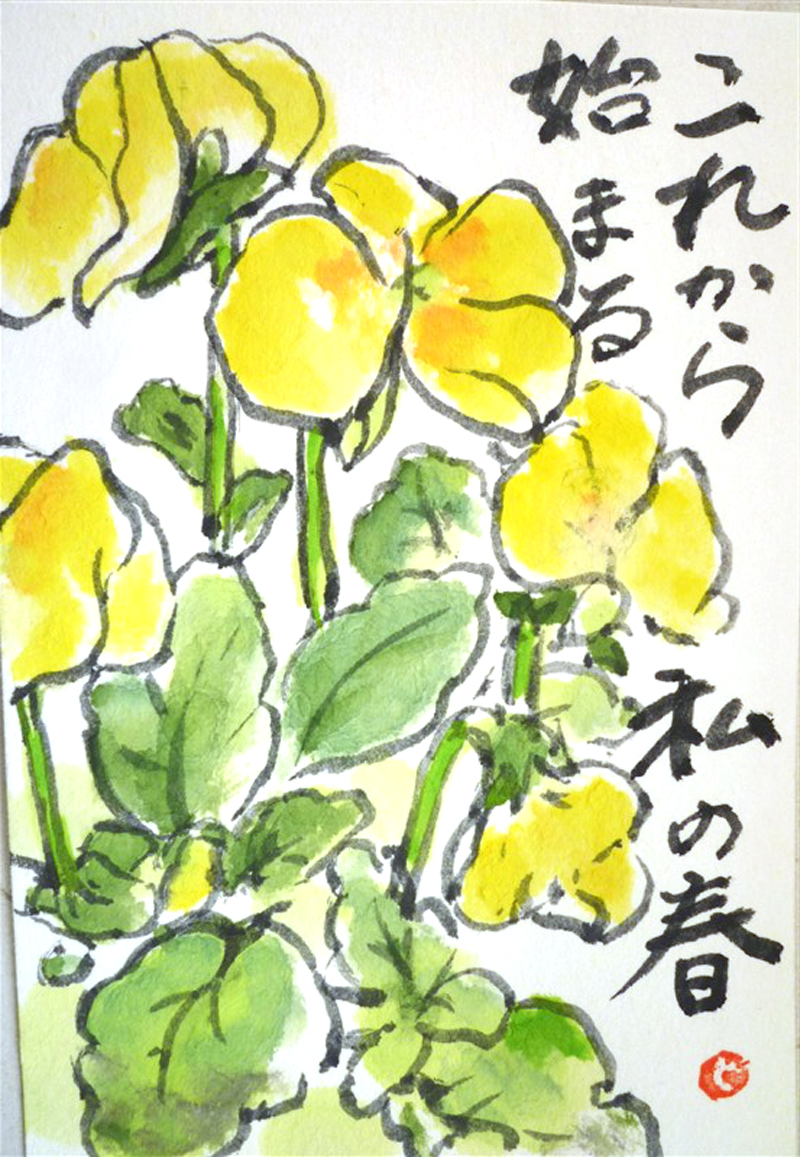 これから
始まる
私の春